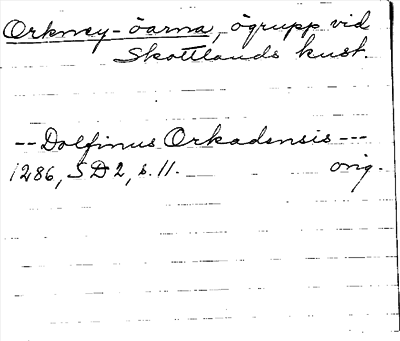 Orkney-öarna, ögrupp vid
Skottlands kust.
-- Dolfinus Orkadensis ---
1286, SD2, s. 11. orig.